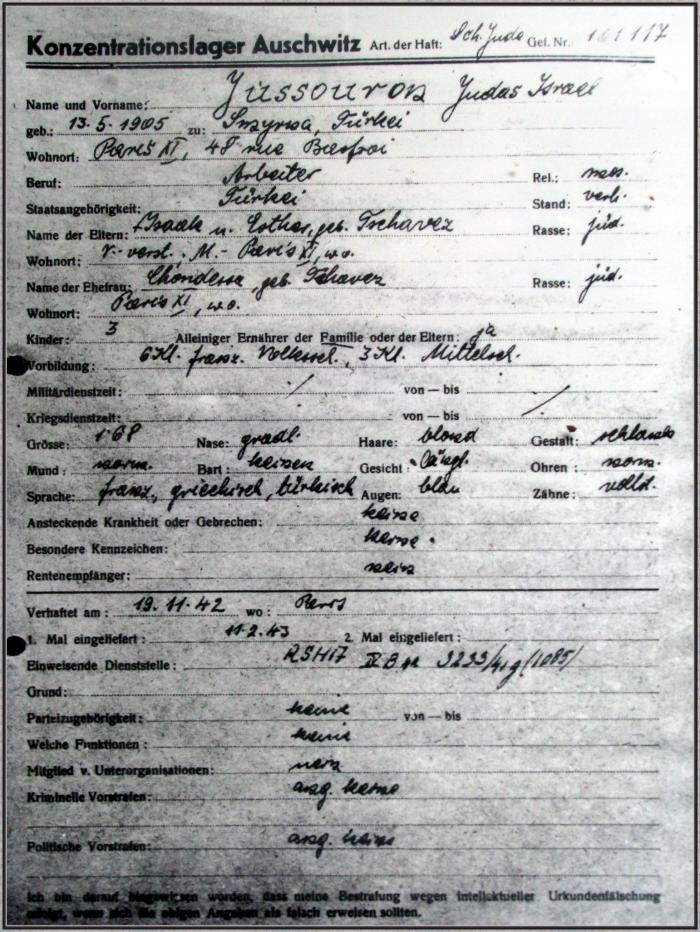 Konzentrationslager Auschwitz Art. der Haft: Sch. Jude Gef. Nr.:
Name und Vorname: Jussouron Judas Israel
geb.: 13.5.1905 zu: Smyrna, Türkei
Wohnort: Paris XI, 48 rue Basfroi
Beruf: Arbeiter Rel.: mos.
Staatsangehörigkeit: Türkei Stand: verh.
Name der Eltern: Isaak u. Esther, geb. Tschavez Rasse: jüd.
Wohnort: V.- verst. M.- Paris XI, w.o.
Name der Ehefrau: geb. Tschavez Rasse: jüd.
Wohnort: Paris XI, w.o.
Kinder: 3 Alleiniger Ernährer der Familie oder der Eltern: ja
Vorbildung: 6 Kl. franz. Volkssch., 3 Kl. Mittelsch.
Militärdienstzeit: / von — bis /
Kriegsdienstzeit: von — bis
Grösse: 168 Nase: gradl. Haare: blond Gestalt: schlank
Mund: norm. Bart: keinen Gesicht: längl. Ohren: norm.
Sprache: franz., griechisch, türkisch Augen: blau Zähne: vollst.
Ansteckende Krankheit oder Gebrechen: keine
Besondere Kennzeichen: keine.
Rentenempfänger: nein
Verhaftet am: 19.11.42 wo: Paris
1. Mal eingeliefert: 11.2.43 2. Mal eingeliefert:
Einweisende Dienststelle: RSHA IV B 4a 3233/41g (1085)
Grund:
Parteizugehörigkeit: keine von — bis
Welche Funktionen: keine
Mitglied v. Unterorganisationen: nein
Kriminelle Vorstrafen: ang. keine
Politische Vorstrafen: ang. keine
Ich bin darauf hingewiesen worden, dass meine Bestrafung wegen intellektueller Urkundenfälschung
erfolgt, wenn sich die obigen Angaben als falsch erweisen sollten.